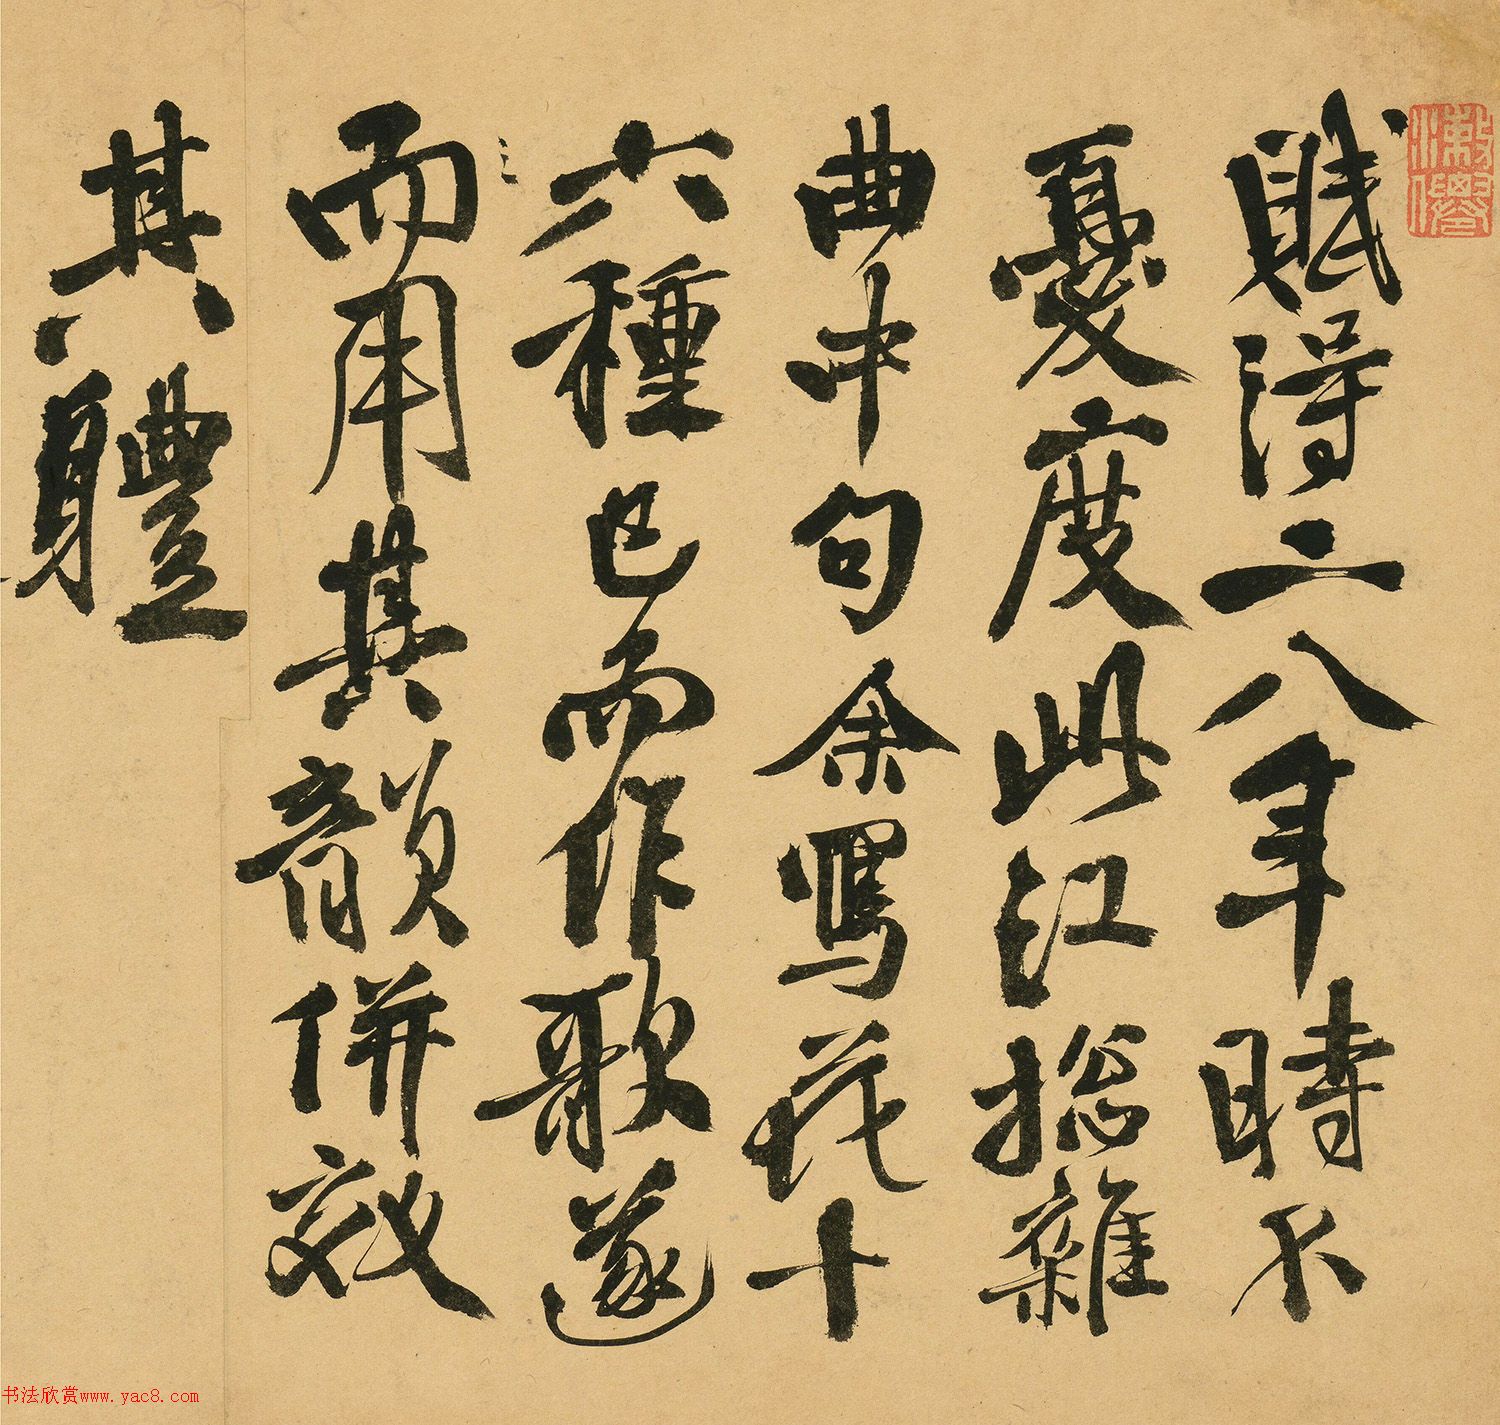 賦得二八年時不
憂度此江総雜
曲中句余寫花十
六種已而作歌遂
而用其韻併效
其軆
漱僊
书法欣赏www.yac8.com